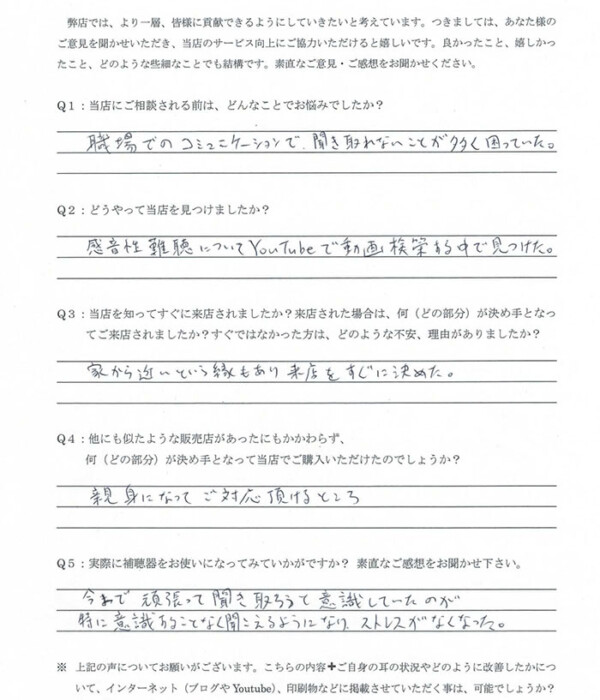 弊店では、より一層、皆様に貢献できるようにしていきたいと考えています。つきましては、あなた様の
ご意見を聞かせいただき、当店のサービス向上にご協力いただけると嬉しいです。良かったこと、嬉しかっ
たこと、どのような些細なことでも結構です。素直なご意見・ご感想をお聞かせください。
Q1：当店にご相談される前は、どんなことでお悩みでしたか？
職場でのコミュニケーションで、聞き取れないことが多く困っていた。
Q2：どうやって当店を見つけましたか？
感音性難聴についてYouTubeで動画検索する中で見つけた。
Q3：当店を知ってすぐに来店されましたか？来店された場合は、何（どの部分）が決め手となっ
てご来店されましたか？すぐではなかった方は、どのような不安、理由がありましたか？
家から近いという縁もあり来店をすぐに決めた。
Q4：他にも似たような販売店があったにもかかわらず、
何（どの部分）が決め手となって当店でご購入いただけたのでしょうか？
親身になってご対応頂けるところ
Q5：実際に補聴器をお使いになってみていかがですか？ 素直なご感想をお聞かせ下さい。
今まで頑張って聞き取ろうと意識していたのが
特に意識することなく聞こえるようになり、ストレスがなくなった。
※ 上記の声についてお願いがございます。こちらの内容＋ご自身の耳の状況やどのように改善したかにつ
いて、インターネット（ブログやYoutube）、印刷物などに掲載させていただく事は、可能でしょうか？